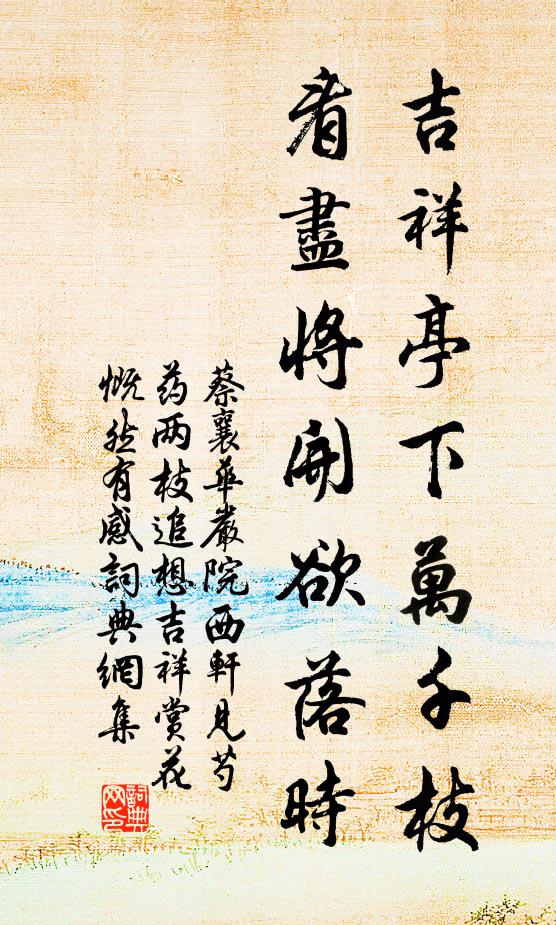 吉祥亭下萬千枝
看盡將開欲落時
蔡襄華嚴院西軒見芍
药两枝追想吉祥赏花
慨然有感詞典網集
詞典網印